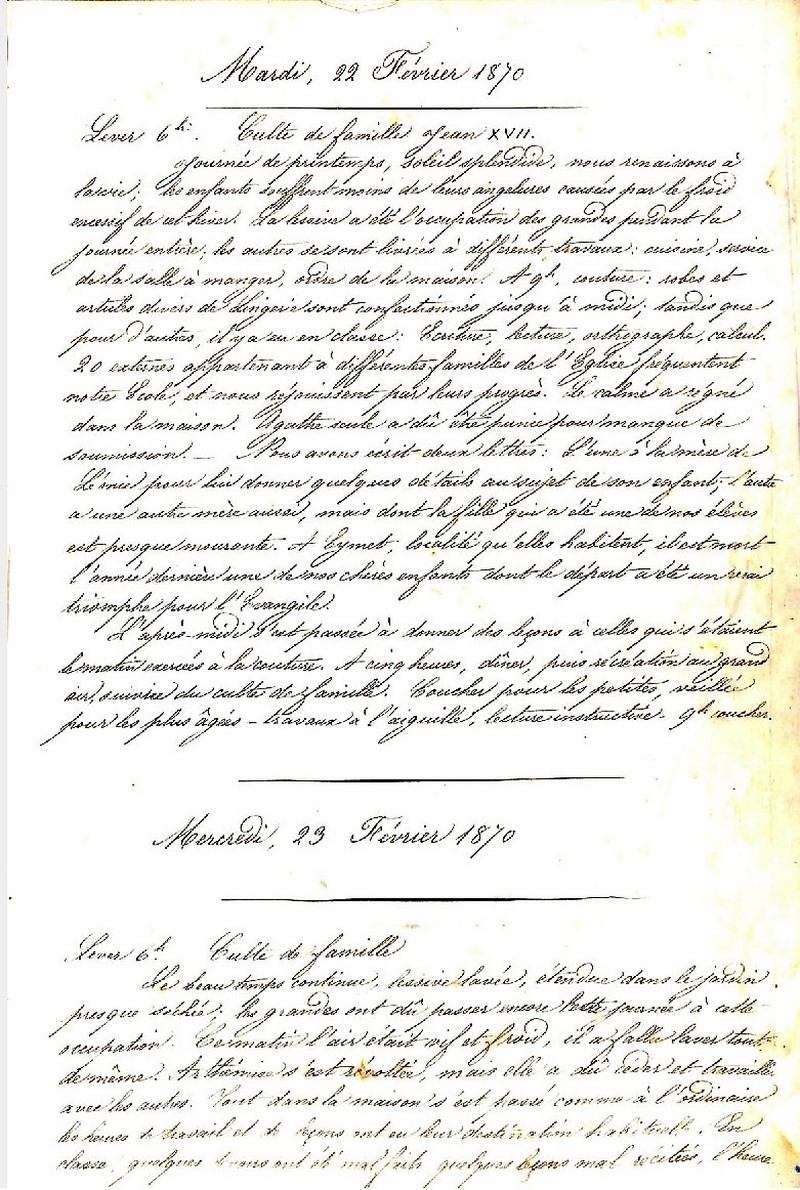 Mardi, 22 Février 1870
Lever 6h. Culte de famille Jean XVII.
Journée de printemps, soleil splendide, nous renaissons à
la vie; les enfants souffrent moins de leurs angelures causées par le froid
excessif de cet hiver. La lessive a été l'occupation des grandes pendant la
journée entière; les autres se sont livrées à différents travaux: cuisine, service
de la salle à manger, ordre de la maison. A 9h, couture: robes et
articles divers de Lingerie sont confectionnés jusqu'à midi; tandis que
pour d'autres, il y a eu en classe: Ecriture, lecture, orthographe, calcul.
20 externes appartenant à différentes familles de l'Eglise fréquentent
notre Ecole, et nous réjouissent par leurs progrès. Le calme a régné
dans la maison. Agathe seule a dû être punie pour manque de
soumission. — Nous avons écrit deux lettres: L'une à la mère de
Lénie pour lui donner quelques détails au sujet de son enfant; l'autre
a une autre mère aussi, mais dont la fille qui a été une de nos élèves
est presque mourante. A Eymet, localité qu'elles habitent, il est mort
l'année dernière une de nos chères enfants dont le départ a été un vrai
triomphe pour l'Evangile.
L'après-midi s'est passée à donner des leçons à celles qui s'étaient
le matin exercées à la couture. A cinq heures, dîner, puis récréation au grand
air, suivie du culte de famille. Coucher pour les petites, veillée
pour les plus âgées – travaux à l'aiguille, lecture instructive – 9h coucher.
Mercredi, 23 Février 1870
Lever 6h. Culte de famille
Le beau temps continue, lessive lavée, étendue dans le jardin
presque séchée; les grandes ont dû passer encore cette journée à cette
occupation. Ce matin l'air était vif et froid, il a fallu laver tout
de même. Arthémise s'est révoltée, mais elle a dû céder et travailler
avec les autres. Tout dans la maison s'est passé comme à l'ordinaire
les heures de travail et de leçons ont eu leur destination habituelle. En
classe, quelques devoirs ont été mal faits quelques leçons mal récitées, l'heure